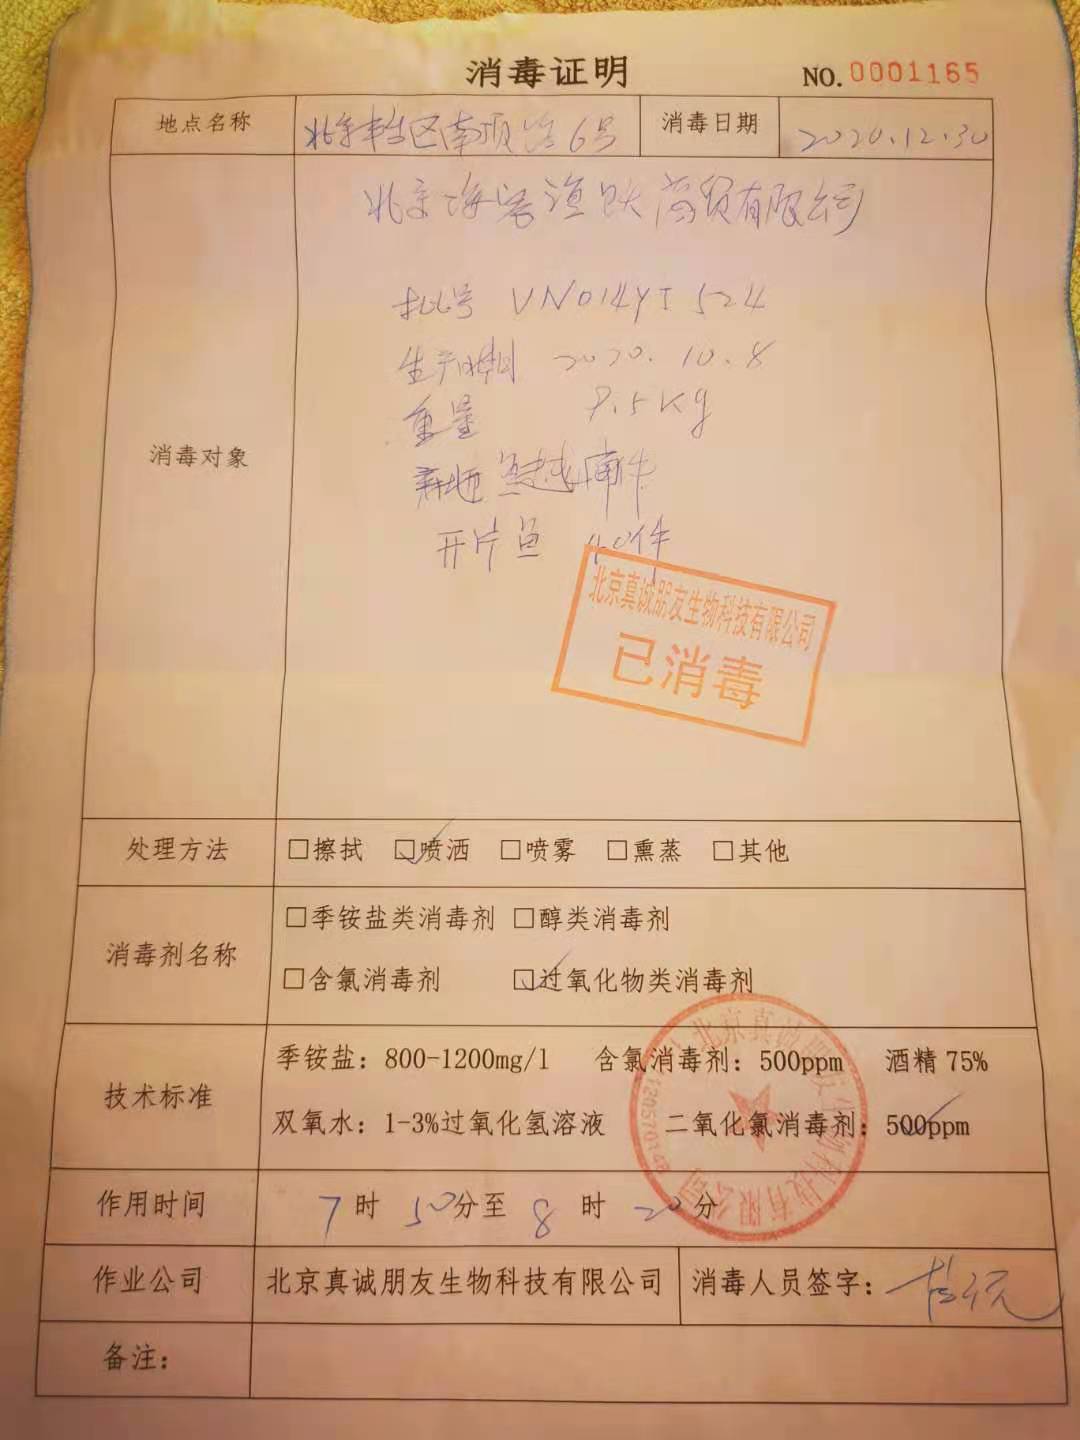 消毒证明
NO. 0001165
地点名称 北京丰台区南顶路6号 消毒日期 2020.12.30
北京海 渔 商贸有限公司
批号 VN014YI524
生产日期 2020.10.8
重量 8.5Kg
消毒对象
产地 越南
开片鱼 40件
北京真诚朋友生物科技有限公司
已消毒
处理方法 □擦拭 ☑喷洒 □喷雾 □熏蒸 □其他
消毒剂名称
□季铵盐类消毒剂 □醇类消毒剂
□含氯消毒剂 ☑过氧化物类消毒剂
技术标准
季铵盐：800-1200mg/l 含氯消毒剂：500ppm 酒精75%
双氧水：1-3%过氧化氢溶液 二氧化氯消毒剂：500ppm
北京真诚朋友生物科技有限公司
作用时间 7时50分至8时20分
作业公司 北京真诚朋友生物科技有限公司 消毒人员签字：
备注：